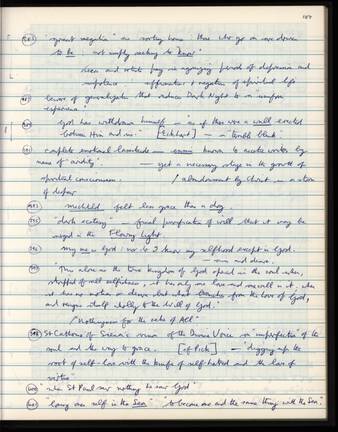 187
"great negation" as sorting house those who go on are drawn
to be not simply seeking to know"
seers and artists pay in agonizing periods of depression and
impotence
affirmation & negation of spiritual life
danger of generalization that reduces Dark Night to a uniform
experience
God has withdrawn himself – as if there was a wall erected
between Him and us." [Eckhart] – a "terrible blank"
complete emotional lassitude – known to ascetic writers by
name of "aridity". – yet a necessary stage in the growth of
spiritual consciousness. / abandonment by Christ in a storm
of despair
Mechthild felt less grace than a dog.
"dark ecstasy" – final purification of will that it may be
merged in the Flowing Light
My me is God: nor do I know my selfhood except in God.
This alone is the true kingdom of God opened in the soul when,
stripped of all selfishness, it has only one love and one will in it, when
it has no motion or desire but what branches from the love of God,
and resigns itself wholly to the will of God.
/ "Nothingness for the sake of All"
St Catherine of Siena's vision of the Divine Voice on "imperfection" of the
soul and the way to grace. – "digging up the
root of self-love with the knife of self-hatred and the love of
virtue"
"when St Paul saw nothing he saw God"
"losing one self in the Sea" "to become one and the same thing with the Sea"